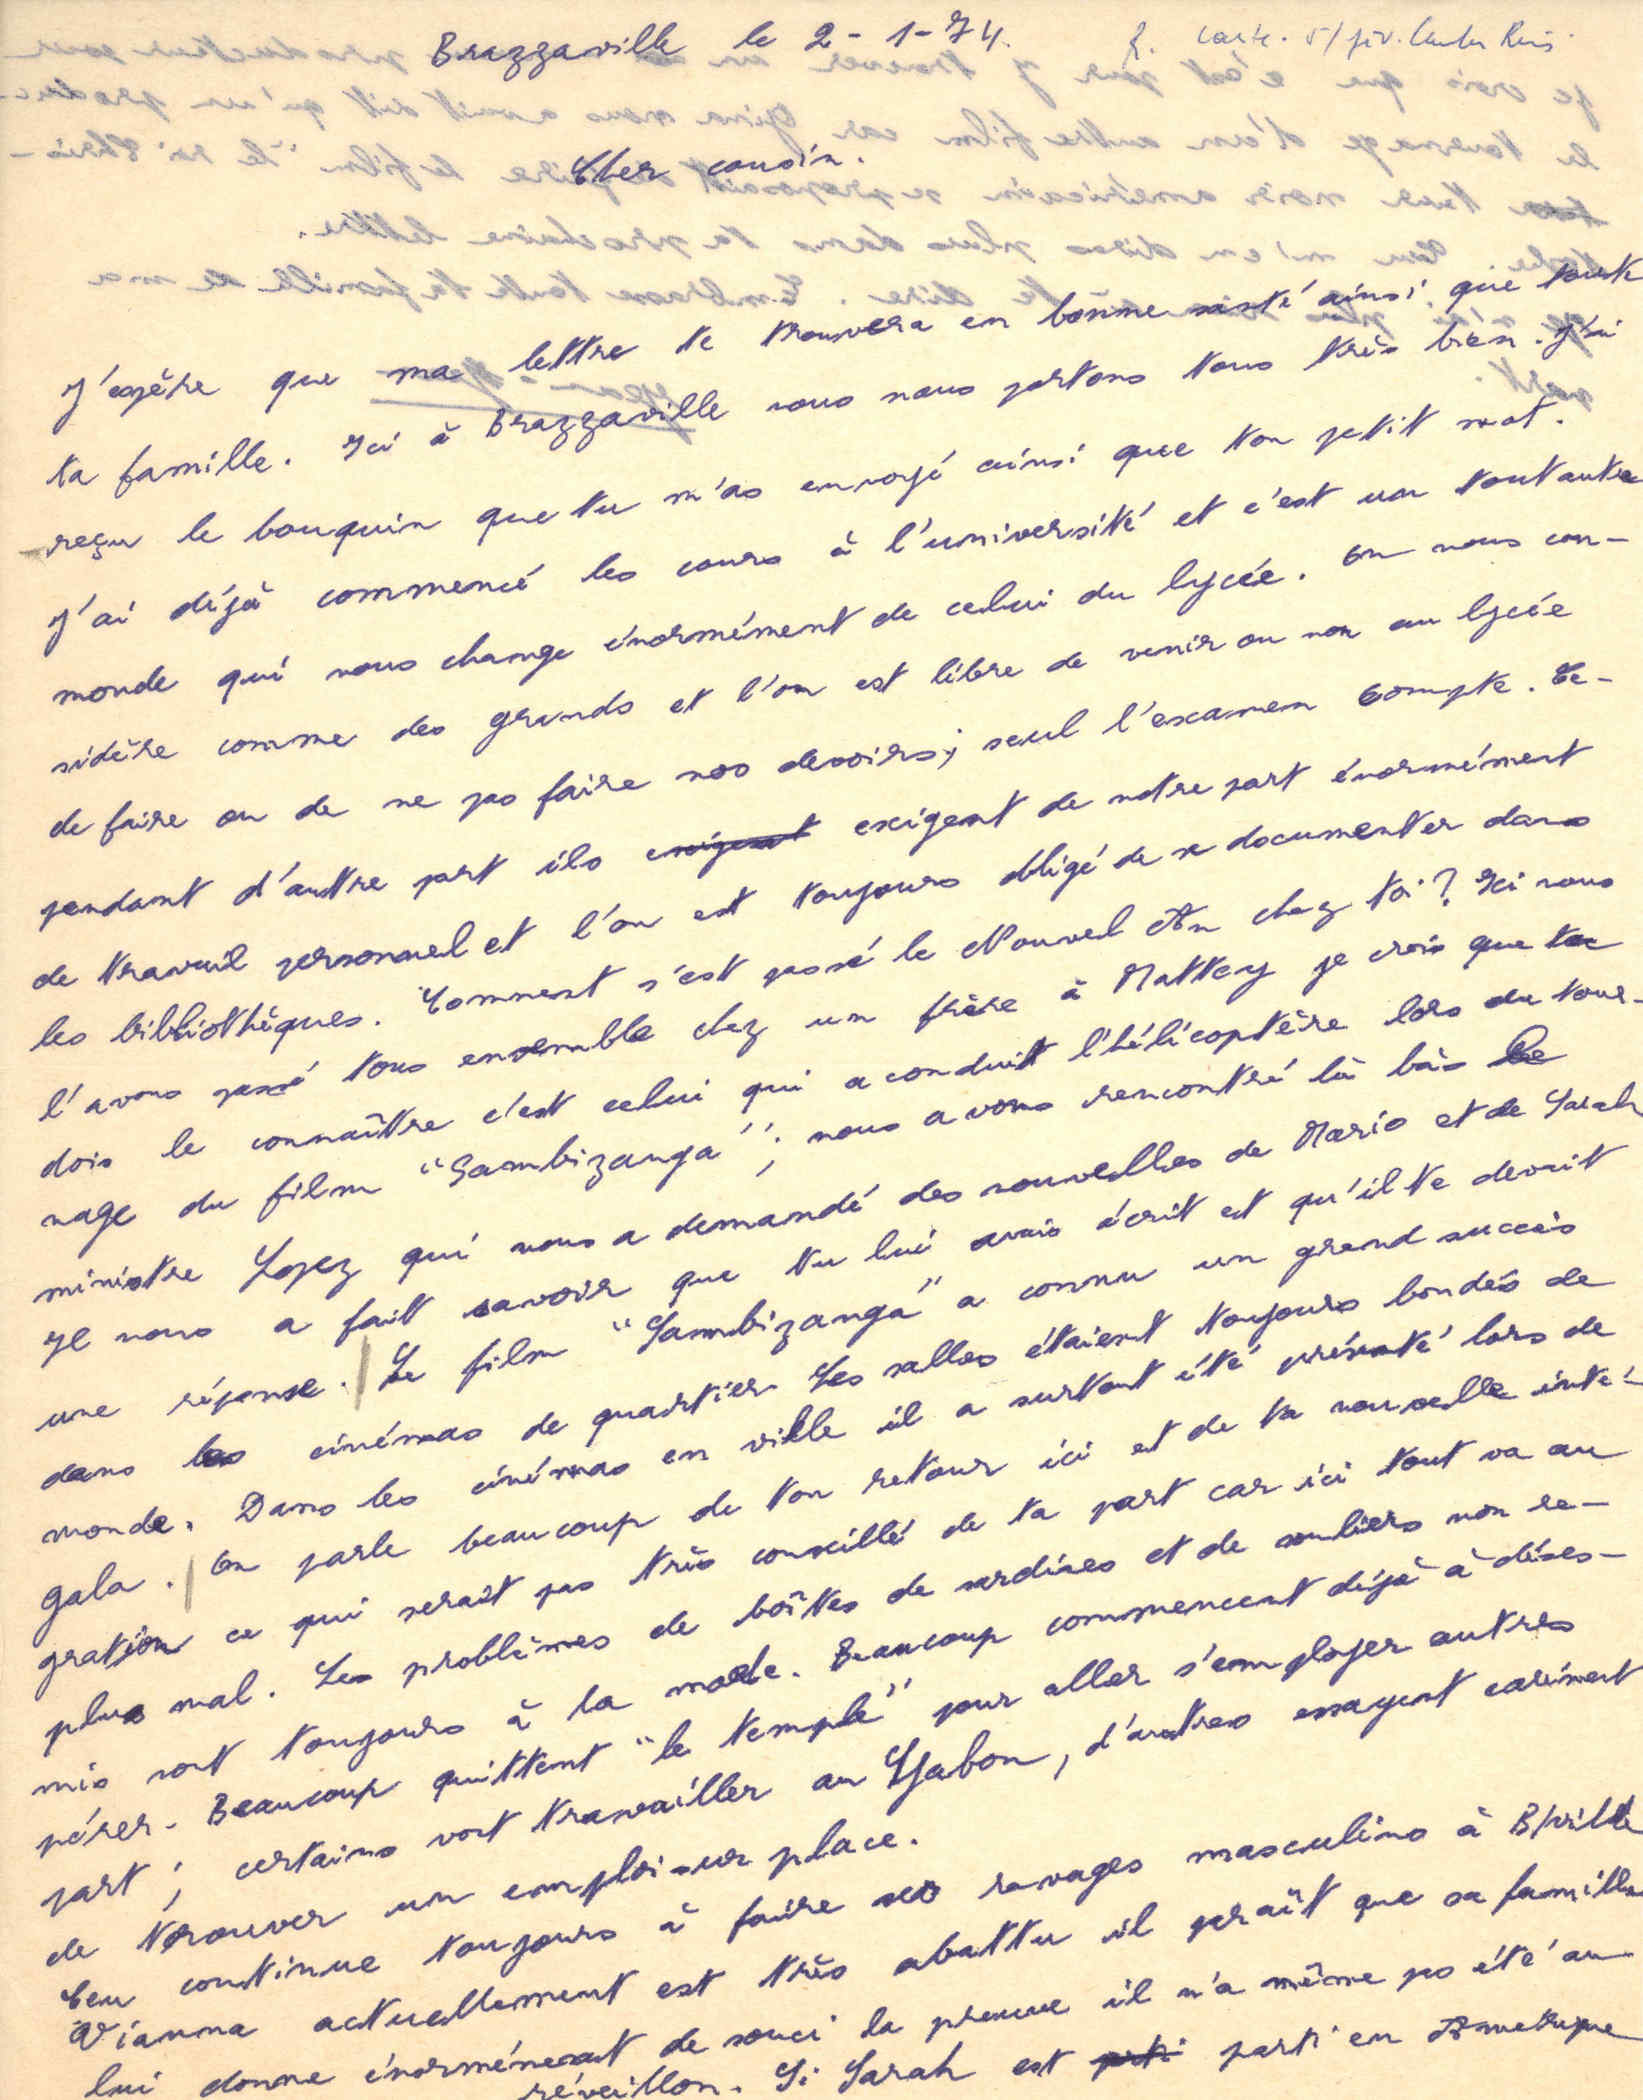 Brazzaville le 2-1-74.
Cher cousin.
J'espère que ma lettre te trouvera en bonne santé ainsi que toute
ta famille. Ici à Brazzaville nous nous portons tous très bien. J'ai
reçu le bouquin que tu m'as envoyé ainsi que ton petit mot.
J'ai déjà commencé les cours à l'université et c'est un tout autre
monde qui nous change énormément de celui du lycée. On nous con-
sidère comme des grands et l'on est libre de venir ou non au lycée
de faire ou de ne pas faire nos devoirs; seul l'examen compte. Ce-
pendant d'autre part ils exigent exigent de notre part énormément
de travail personnel et l'on est toujours obligé de se documenter dans
les bibliothèques. Comment s'est passé le Nouvel An chez toi? Ici nous
l'avons passé tous ensemble chez un frère à Mattey je crois que tu
dois le connaître c'est celui qui a conduit l'hélicoptère lors du tour-
nage du film "Sambizanga"; nous avons rencontré là bas le
ministre Lopez qui nous a demandé des nouvelles de Mario et de Sarah
Il nous a fait savoir que tu lui avais écrit et qu'il te devait
une réponse. Le film "Sambizanga" a connu un grand succès
dans les cinémas de quartier Les salles étaient toujours bondés de
monde. Dans les cinémas en ville il a surtout été présenté lors de
gala. On parle beaucoup de ton retour ici et de ta nouvelle inté-
gration ce qui serait pas très conseillé de ta part car ici tout va au
plus mal. Les problèmes de boîtes de sardines et de souliers non re-
mis sont toujours à la mode. Beaucoup commencent déjà à déses-
pérer. Beaucoup quittent "le temple" pour aller s'employer autres
part; certains vont travailler au Gabon, d'autres essayent carément
de trouver un emploi sur place.
continue toujours à faire ses ravages masculins à B/ville
Vianna actuellement est très abattu il paraît que sa famille
lui donne énormément de souci la preuve il n'a même pas été au
réveillon. Si Sarah est parti parti en Amerique